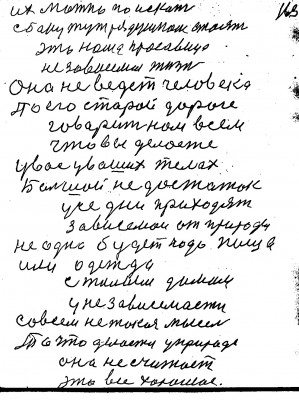 их мотто поискат
с боку тут рядушком стоят
это наша красавица
независимая жизн
Она не ведет человека
По его старой дороге
говорит нам всем
что вы делаете
у вас у ваших телах
Болшой недостаток
уже дни приходят
зависемои от природы
не одна будет подъ пища
или одежда
с тоилым домам
у независемасти
совсем не такая мысел
То что делается у природе
она не считает
это все хорошое.